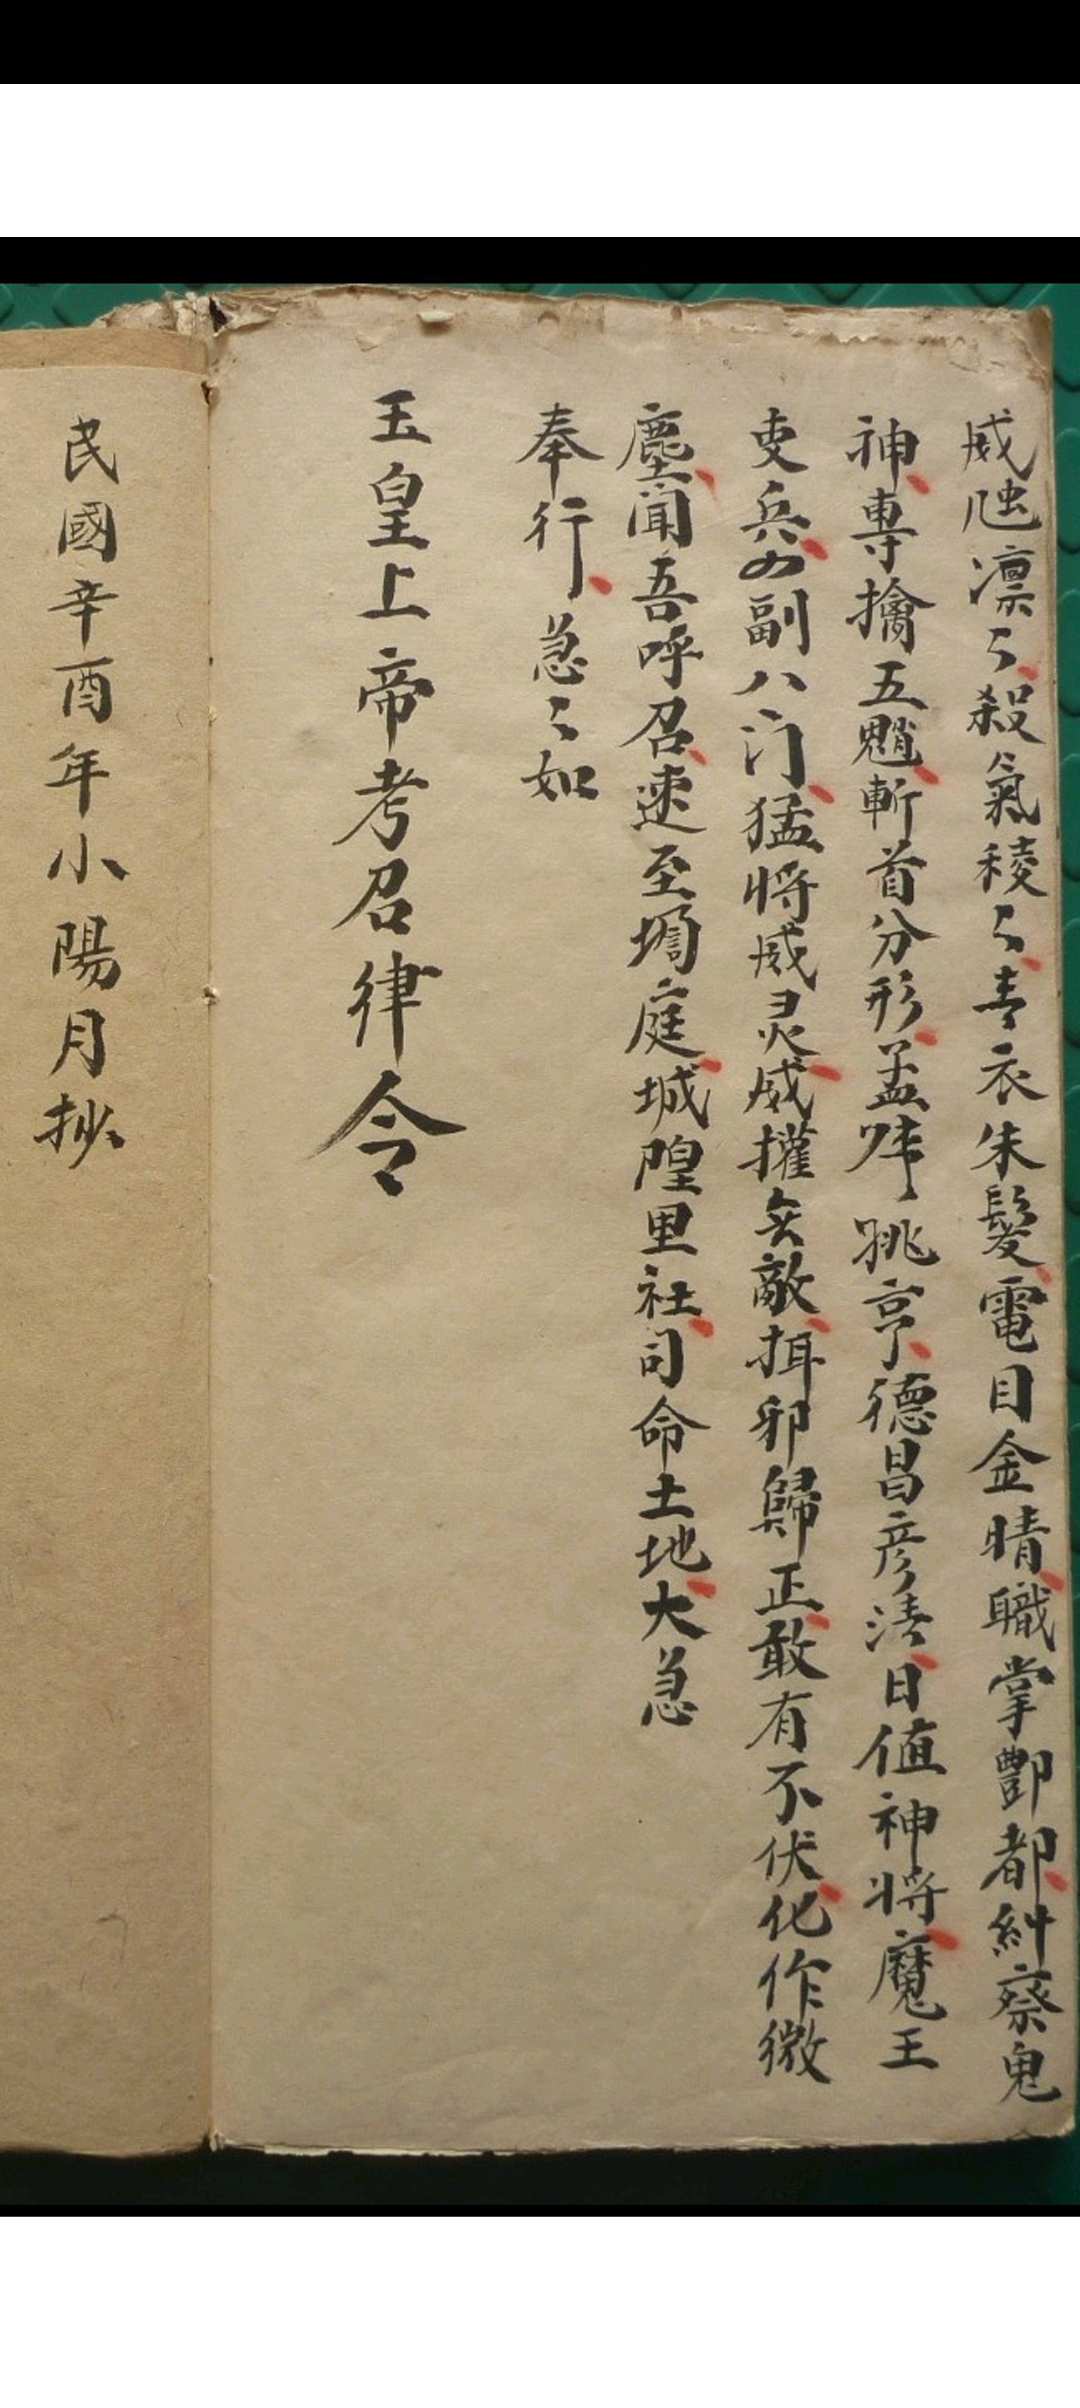 威虺凛々殺氣稜々青衣朱髮電目金晴職掌酆都糾察鬼
神專擒五魈斬首分形孟 姚亨德昌彦法日值神將魔王
吏兵四副八门猛將威灵威權矣敵揖邪歸正敢有不伏化作微
塵聞吾呼召速至壇庭城隍里社司命土地大急
奉行急々如
玉皇上帝考召律令
民國辛酉年小陽月抄